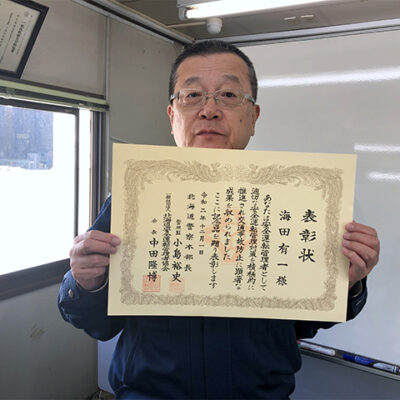 表彰状
海田有一様
あなたは安全運転管理者として
適切な安全運転管理対策を積極的に
推進され交通事故防止に顕著な
成果を収められました
ここに記念品を贈り表彰します
令和二年十二月一日
北海道警察本部長
警視監 小島裕史
一般社団法人 北海道安全運転管理者協会
会長 中田隆博